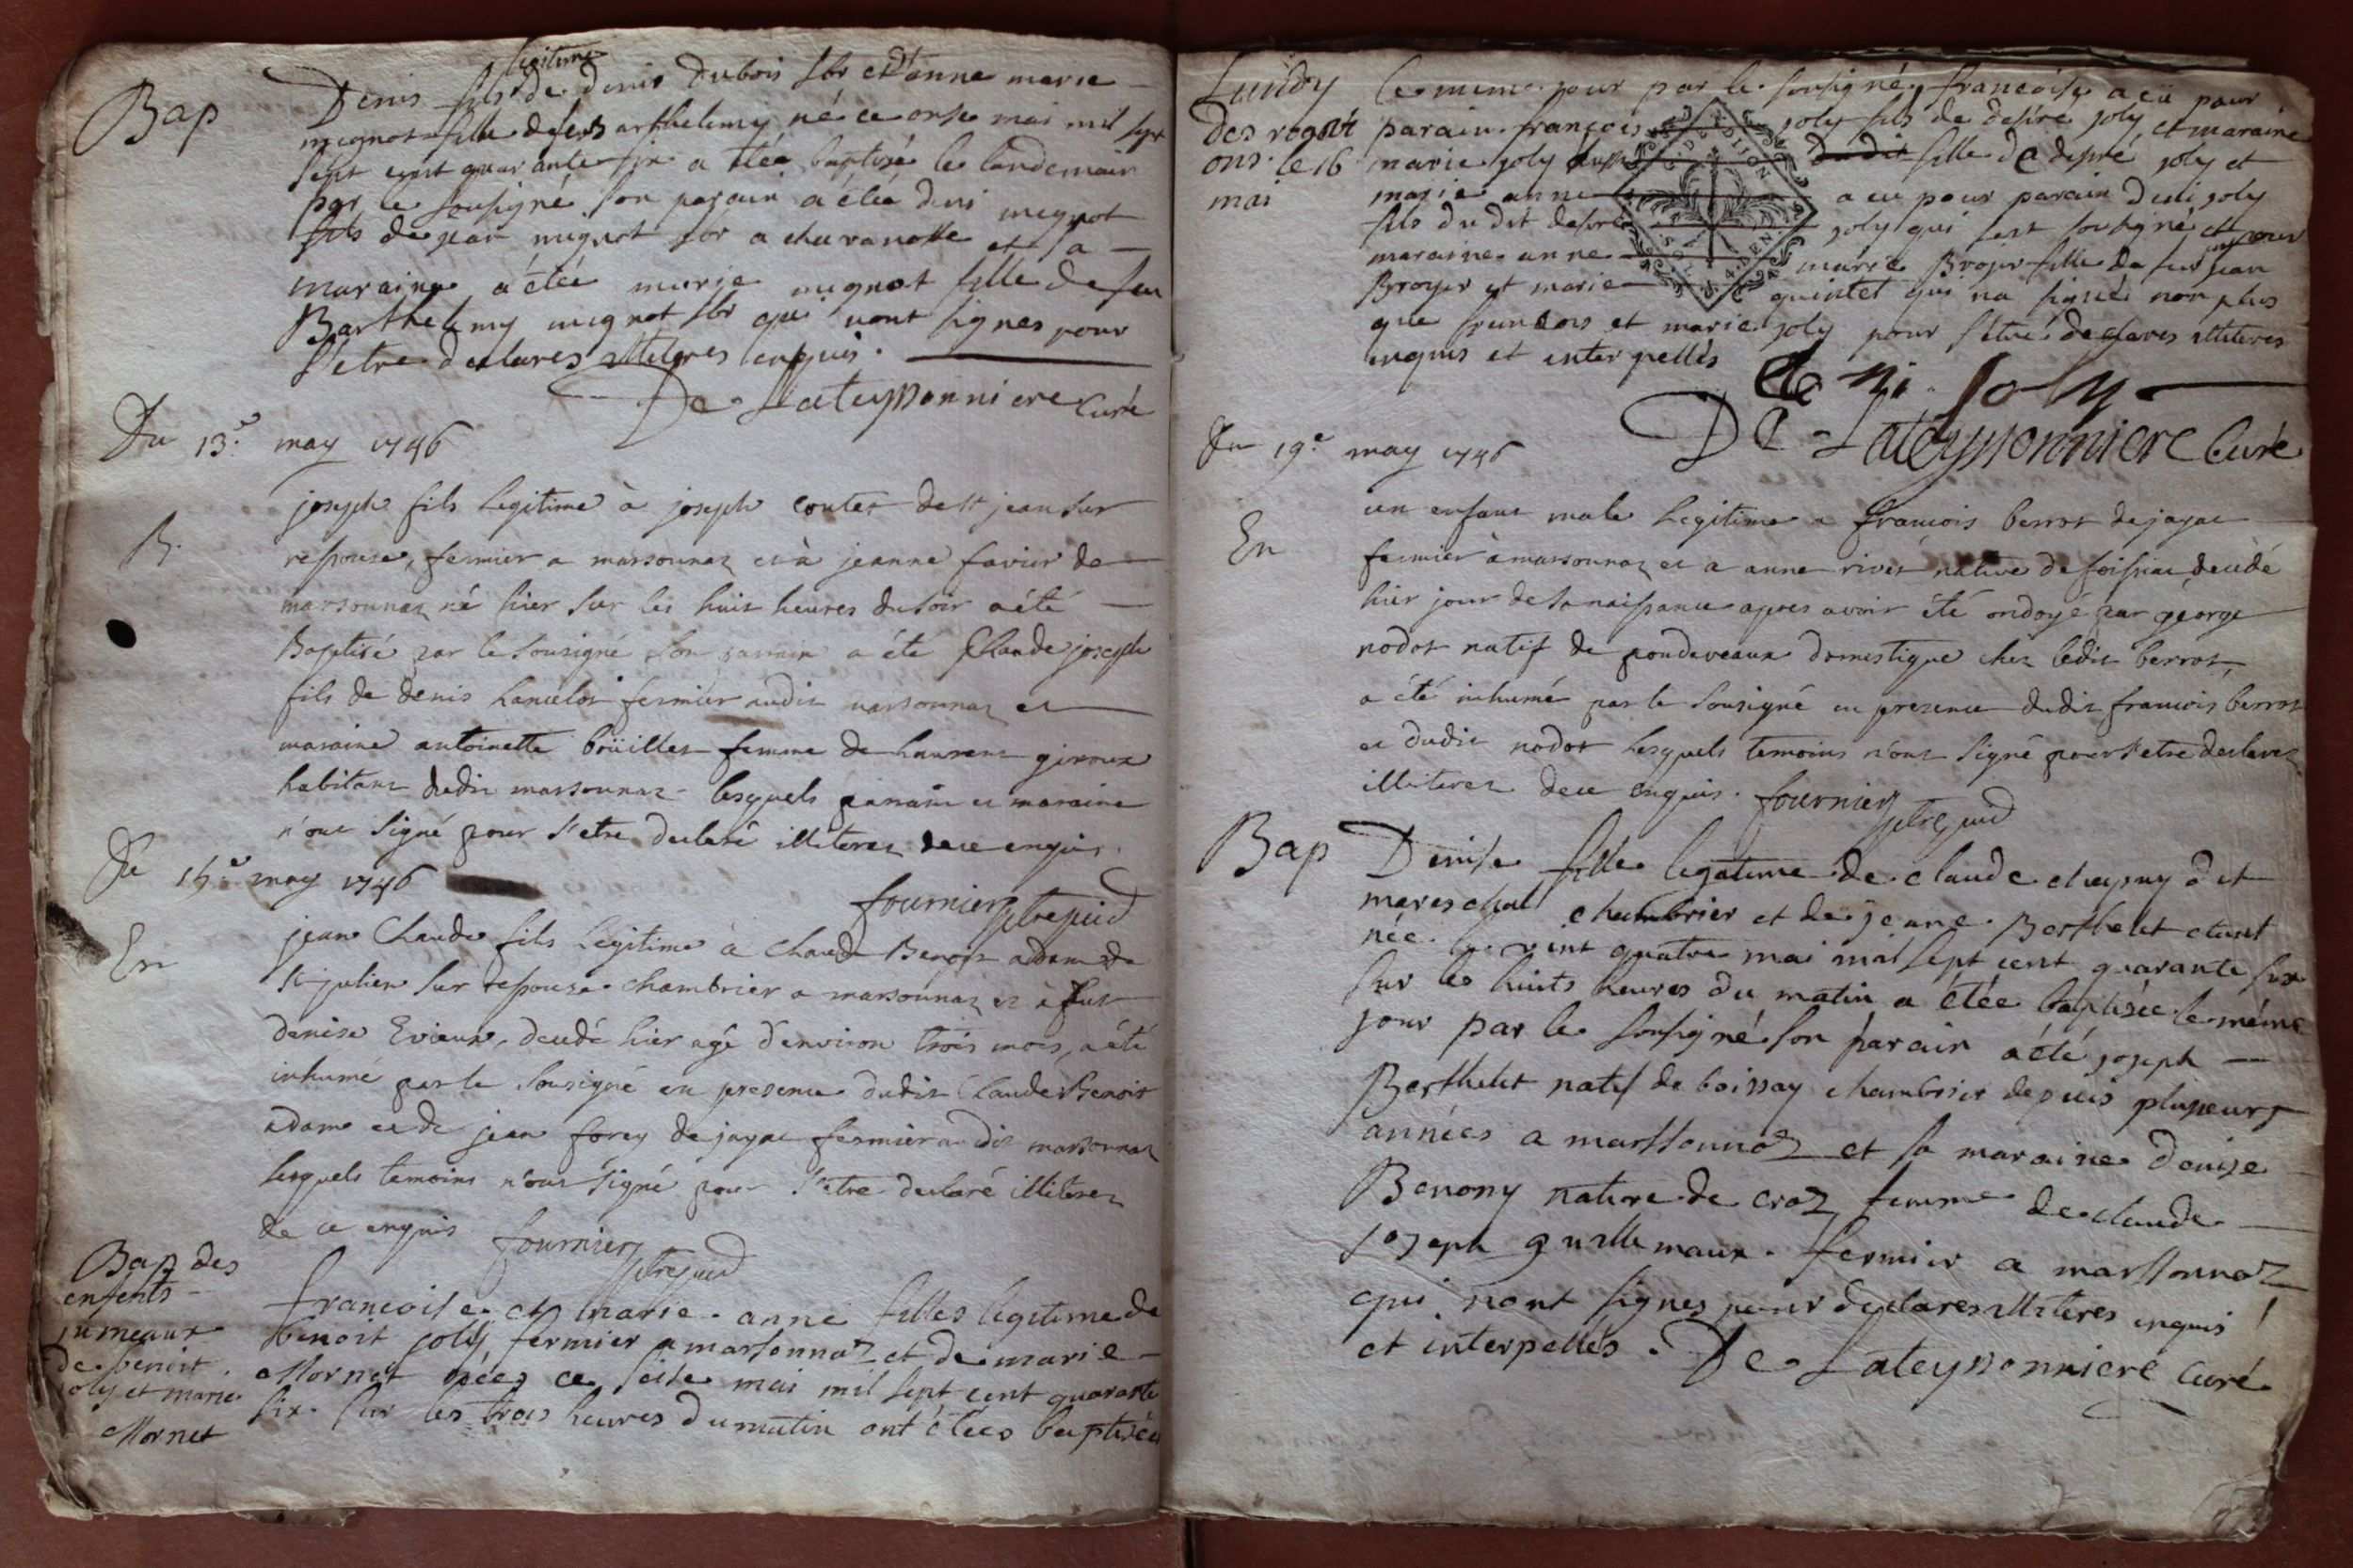 Bap
Denis fils legitime de denis Dubois lbr et d'anne marie
mignot fille de feu Barthelemy né ce onse mai mil sept
sept cent quarante six a étée baptisé le landemain
par le sousigné son parain a étée deni mignot
fils de jean mignot lbr a et sa
maraine a étée marie mignot fille de feu
Barthelemy mignot lbr qui nont signes pour
s'etre declares illiteres enquis.
De Lateyssonniere Curé
Du 13.e may 1746
B.
joseph fils legitime à joseph coutet de st jean sur
ressouse, fermier a marsonnaz et à jeanne favier de
marsonnaz né hier sur les huit heures du soir a été
Baptisé par le sousigné son parain a été Claude joseph
fils de denis Lancelot fermier audit marsonnaz et
maraine antoinette boüillet femme de Laurent giroux
habitant dudit marsonnaz lesquels parain et maraine
n'ont signé pour s'etre declaré illiterez de ce enquis.
fournier
Du 15.e may 1746
En
jean Claude fils legitime à Claude Benoit adam de
st julien sur ressouse chambrier a marsonnaz et à fut
denise Evieux, decedé hier agé d'environ trois mois, a été
inhumé par le sousigné en presence dudit Claude Benoit
adam et de jean forey de jayat fermier audit marsonnaz
lesquels temoins n'ont signé pour s'etre declaré illiterez
de ce enquis fournier
Bap des
enfents
jumeaux
de benoit
joly et marie
Mornet
francoise et marie anne filles legitime de
benoit joly fermier a marsonnaz et de marie
Mornet nées ce seise mai mil sept cent quarante
six sur les trois heures du matin ont étées baptisées
Lundy
des rogati
ons le 16
mai
le meme jour par le sousigné francoise a eü pour
parain françois joly fils de desire joly et maraine
marie joly dudit fille de desiré joly et
marie anne a eu pour parain deni joly
fils du dit desiré joly qui s'est sousigné et pour
maraine anne marie Broyer fille de feu jean
Broyer et marie quintet qui na signé non plus
que francois et marie joly pour s'etre declares illiteres
enquis et interpellés
de ni joly
De Lateyssonniere Curé
Du 19.e may 1746
En
un enfant male legitime a francois berrot de jayat
fermier à marsonnaz et a anne rivet native de foissiat decedé
hier jour de sa naissance apres avoir été ondoyé par george
nodot natif de pondeveaux domestique chez ledit berrot
a été inhumé par le sousigné en presence dudit francois berrot
et dudit nodot lesquels temoins n'ont signé pour s'etre declarez
illiterez de ce enquis. fournier
Bap
Denise fille legatime de claude chapuy dit
mareschal chambrier et de jeanne Berthelet etant
née le vint quatre mai mil sept cent quarante six
sur les huits heures du matin a étée baptisée le même
jour par le sousigné son parain a été joseph
Berthelet natif de boissay chambrier depuis plusieurs
années a marssonnaz et sa maraine denise
Benony native de croz femme de claude
joseph guillemaux fermier a marssonnaz
qui nont signes pour declares illiteres enquis
et interpellés. De Lateyssonniere Curé